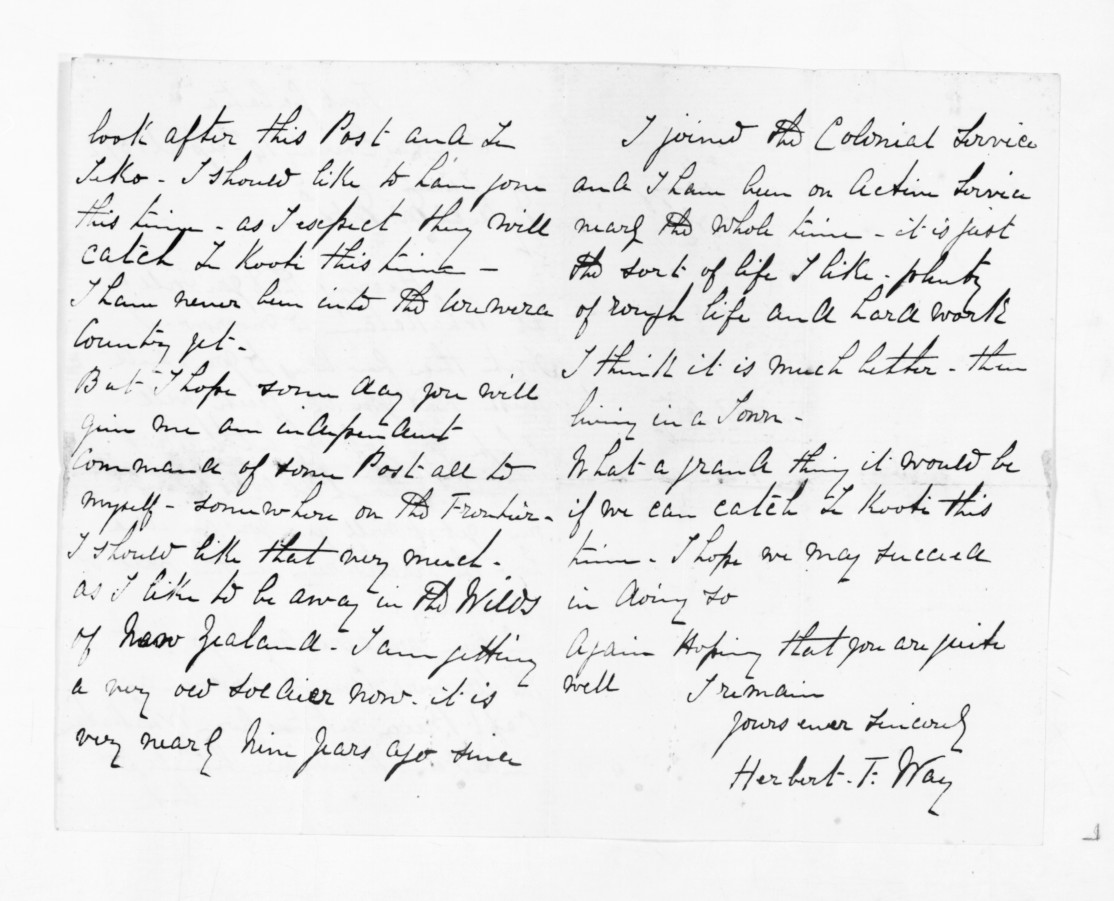 look after this Post and Te
Teko - I should like to have gone
this time - as I expect they will
catch Te Kooti this time -
I have never been into the Urewera
Country yet -
But I hope some day you will
give me an independent
Command of some Post all to
myself - somewhere on the Frontier -
I should like that very much -
as I like to be away in the Wilds
of New Zealand - I am getting
a very old soldier now. it is
very nearly Nine years ago since
I joined the Colonial Service
and I have been on Active Service
nearly the whole time - it is just
the sort of life I like - plenty
of rough life and hard work
I think it is much better - than
living in a Town -
What a grand thing it would be
if we can catch Te Kooti this
time - I hope we may succeed
in doing so
Again Hoping that you are quite
well I remain
yours ever sincerely
Herbert. T. Way